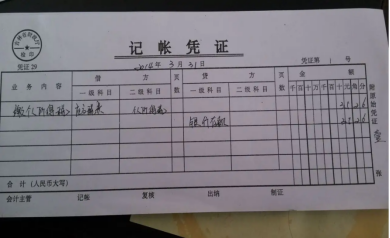 记帐凭证
凭证29
2014年3月31日
凭证第1号
业务内容 借方 页数 贷方 页数 金额
一级科目 二级科目 一级科目 二级科目 千百十万千百十元角分
缴个人所得税 应交税费 个人所得税
银行存款
附原始凭证 张
合计(人民币大写)
会计主管 记帐 复核 出纳 制证